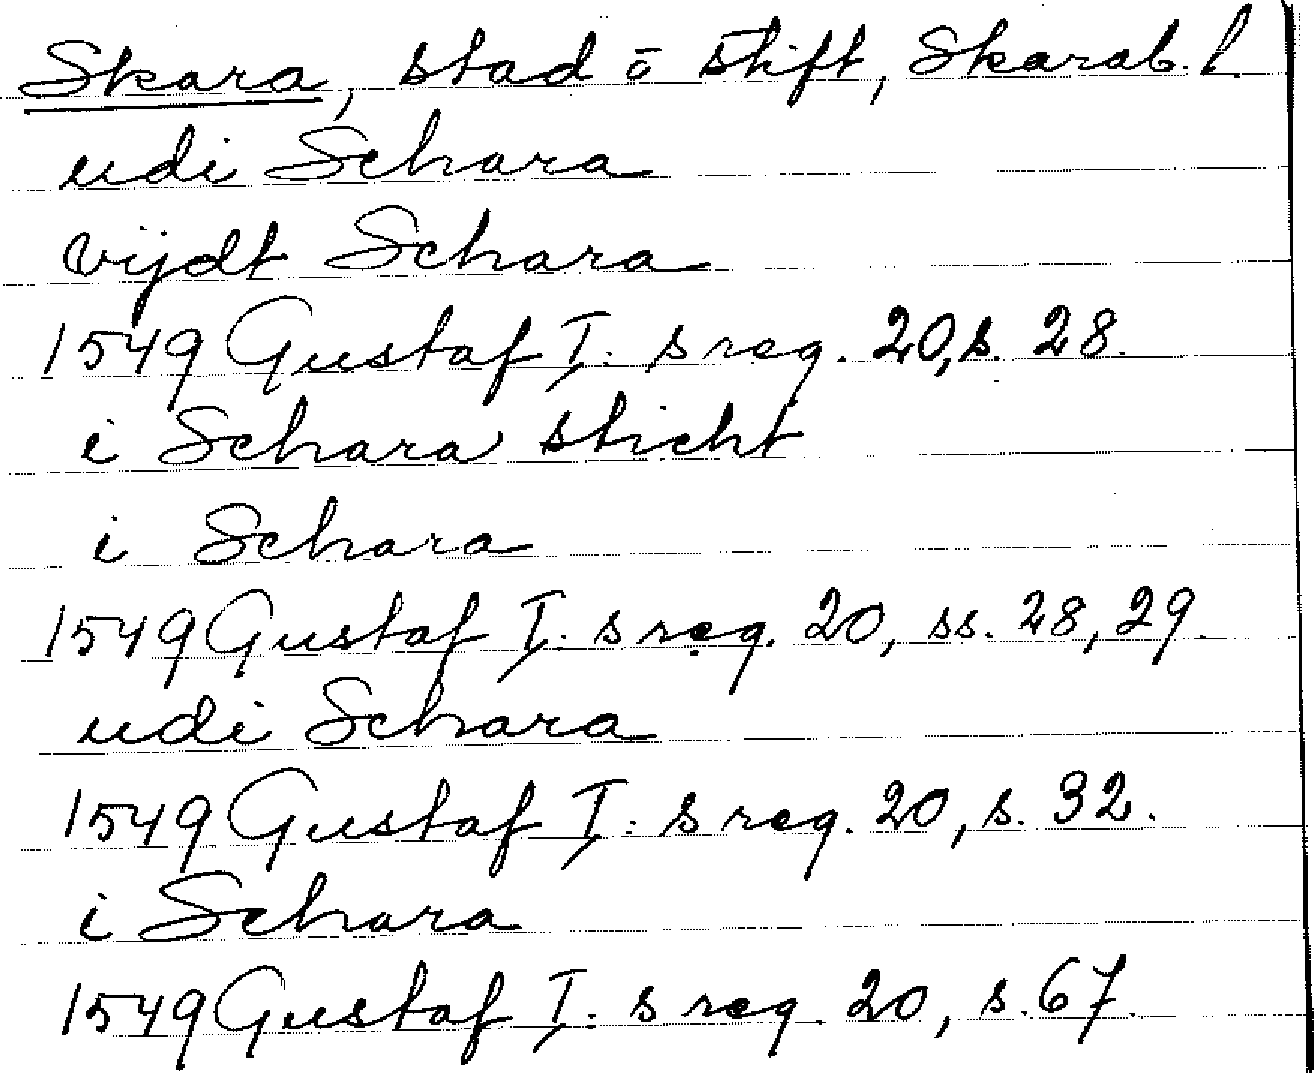 Skara, stad o stift, Skarab. l.
udi Schara
vijdt Schara
1549 Gustaf I: s reg. 20, s. 28.
i Schara sticht
i Schara
1549 Gustaf I: s reg. 20, ss. 28, 29.
udi Schara
1549 Gustaf I: s reg. 20, s. 32.
i Schara
1549 Gustaf I: s reg. 20, s. 67.